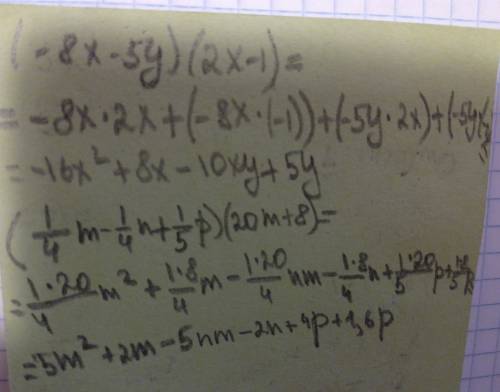 (-8x-5y)(2x-1)=
=-8x·2x+(-8x·(-1))+(-5y·2x)+(-5y·(
=-16x²+8x-10xy+5y
(1/4 m-1/4 n+1/5 p)(20m+8)=
=1·20/4 m²+1·8/4 m-1·20/4 nm-1·8/4 n+1·20/5 p+1·8/5 p
=5m²+2m-5nm-2n+4p+1,6p